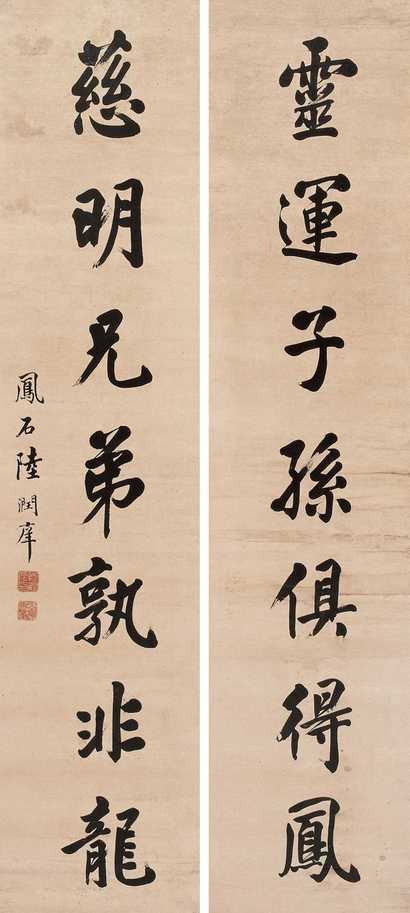 靈運子孫俱得鳳
慈明兄弟孰非龍
鳳石陸潤庠